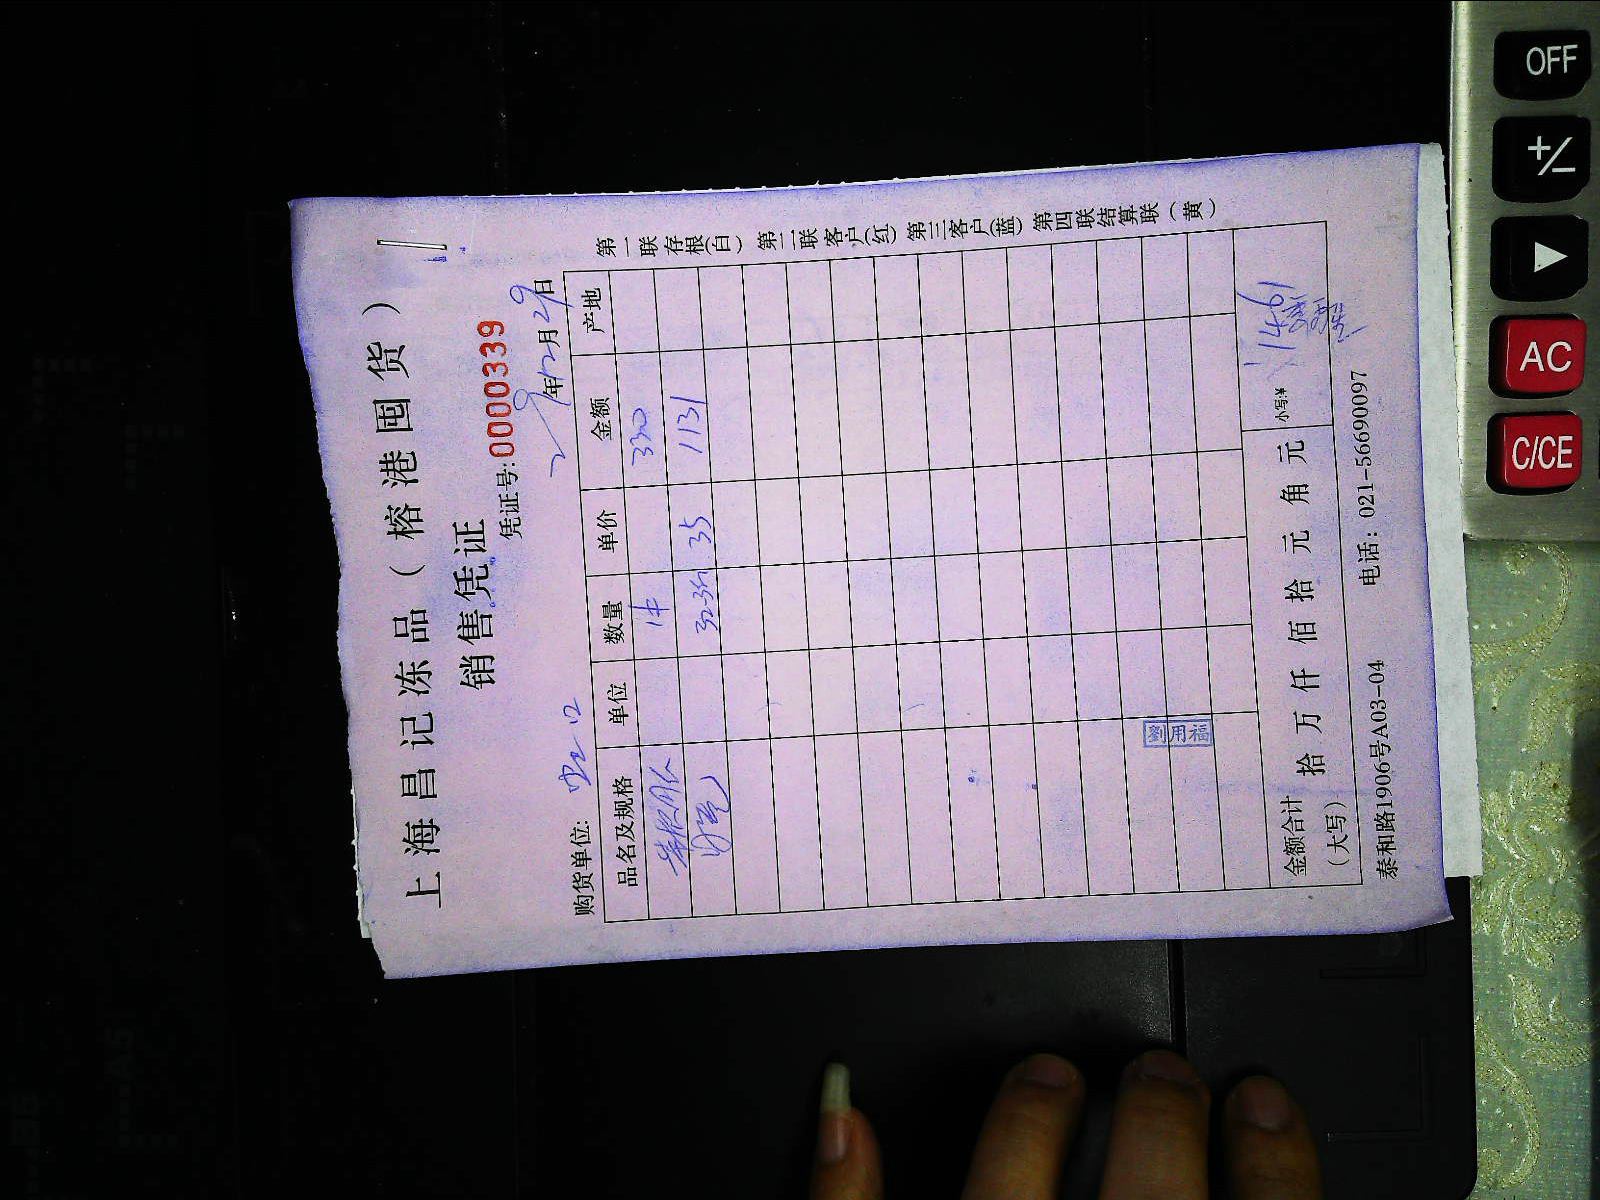 上海昌记冻品（榕港囤货）
销售凭证
凭证号: 0000339
购货单位:
年12月29日
品名及规格 单位 数量 单价 金额 产地
1件 330
35 1131
金额合计（大写） 拾 万 仟 佰 拾 元 角 元 小写:¥ 1461
泰和路1906号A03-04 电话：021-56690097
第一联存根(白) 第二联客户(红) 第三客户(蓝) 第四联结算联（黄）
劉用福
OFF
+/-
▶
AC
C/CE